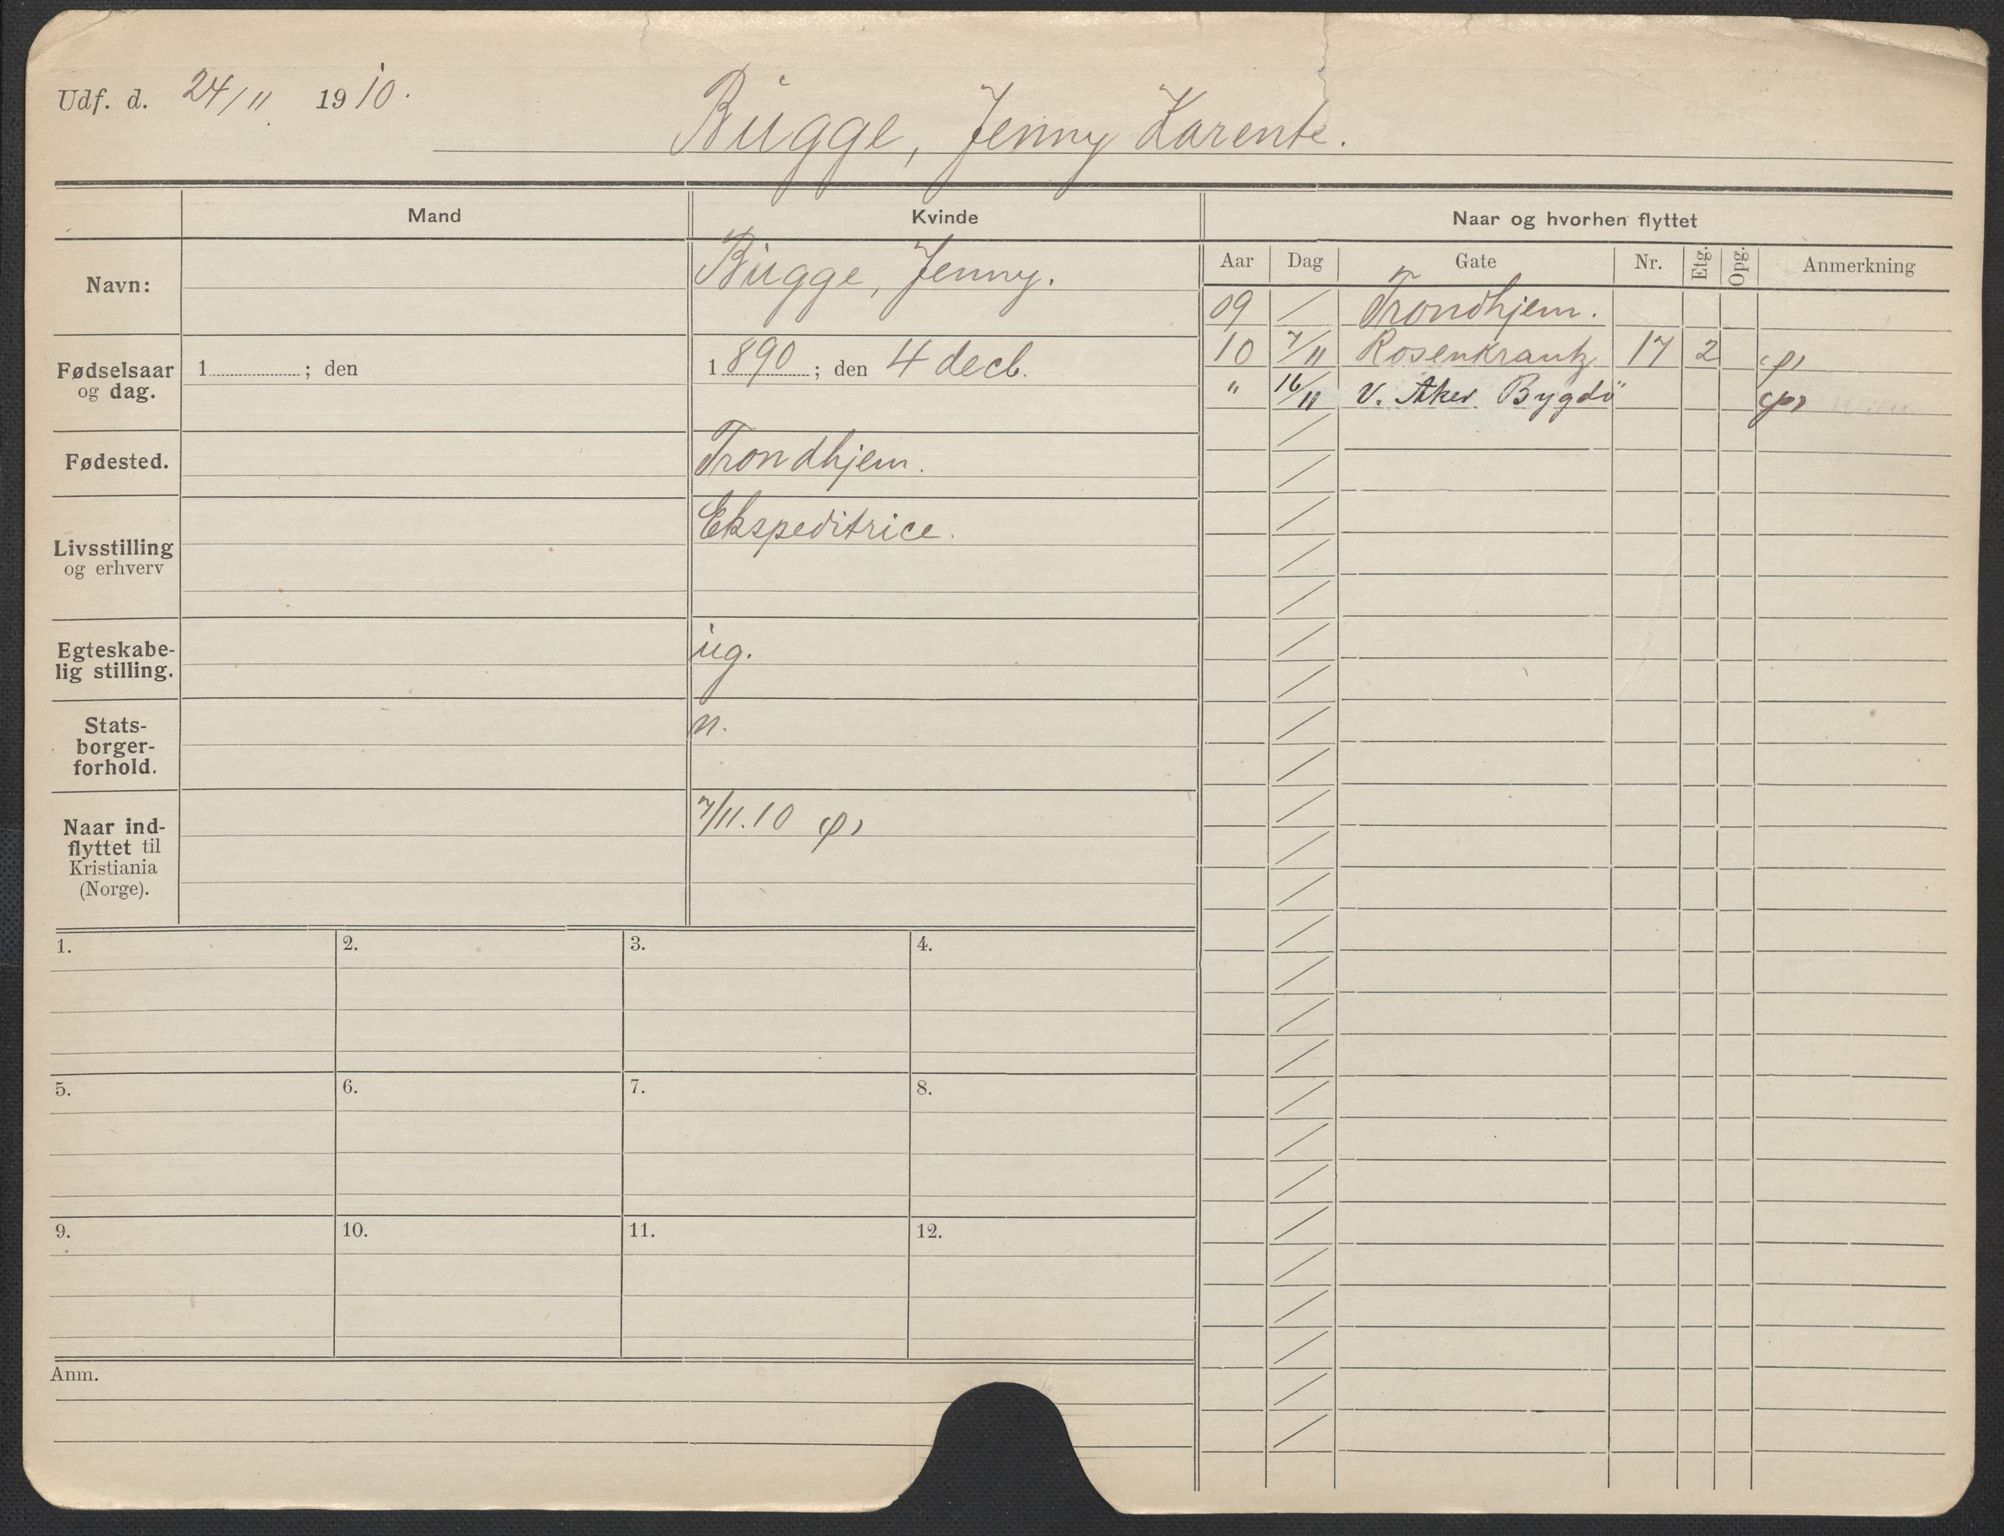 Udf. d. 24/11 1910.
Bugge, Jenny Karente.
Mand Kvinde Naar og hvorhen flyttet
Aar Dag Gate Nr. Etg. Opg. Anmerkning
Navn: Bugge, Jenny.
09 Trondhjem.
10 7/11 Rosenkrantz 17 2
" 16/11 V. Aker Bygdö
Fødselsaar og dag. 1 ; den 1890 ; den 4 decb.
Fødested. Trondhjem.
Livsstilling og erhverv Ekspeditrice.
Egteskabe-
lig stilling. ug.
Stats-
borger-
forhold. n.
Naar ind-
flyttet til
Kristiania
(Norge). 7/11.10
1. 2. 3. 4.
5. 6. 7. 8.
9. 10. 11. 12.
Anm.